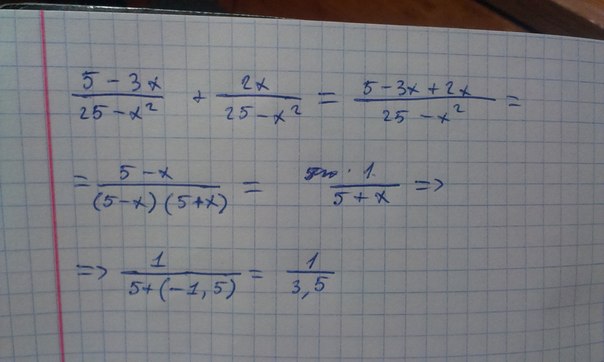 (5 - 3x)/(25 - x²) + 2x/(25 - x²) = (5 - 3x + 2x)/(25 - x²) =
= (5 - x)/((5-x)(5+x)) = 1/(5 + x) =>
=> 1/(5+(-1,5)) = 1/3,5